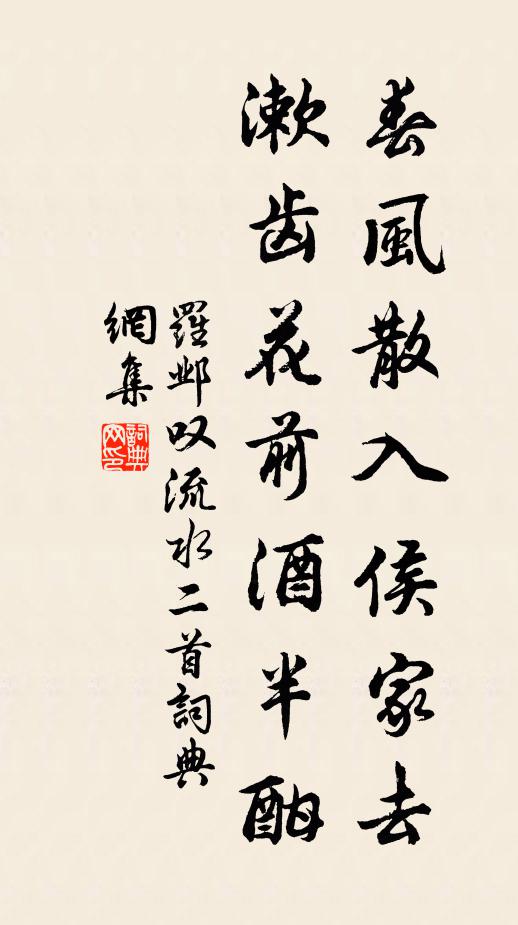 春風散入侯家去
漱齿花前酒半酣
羅邺叹流水二首詞典
網集
詞典
网印